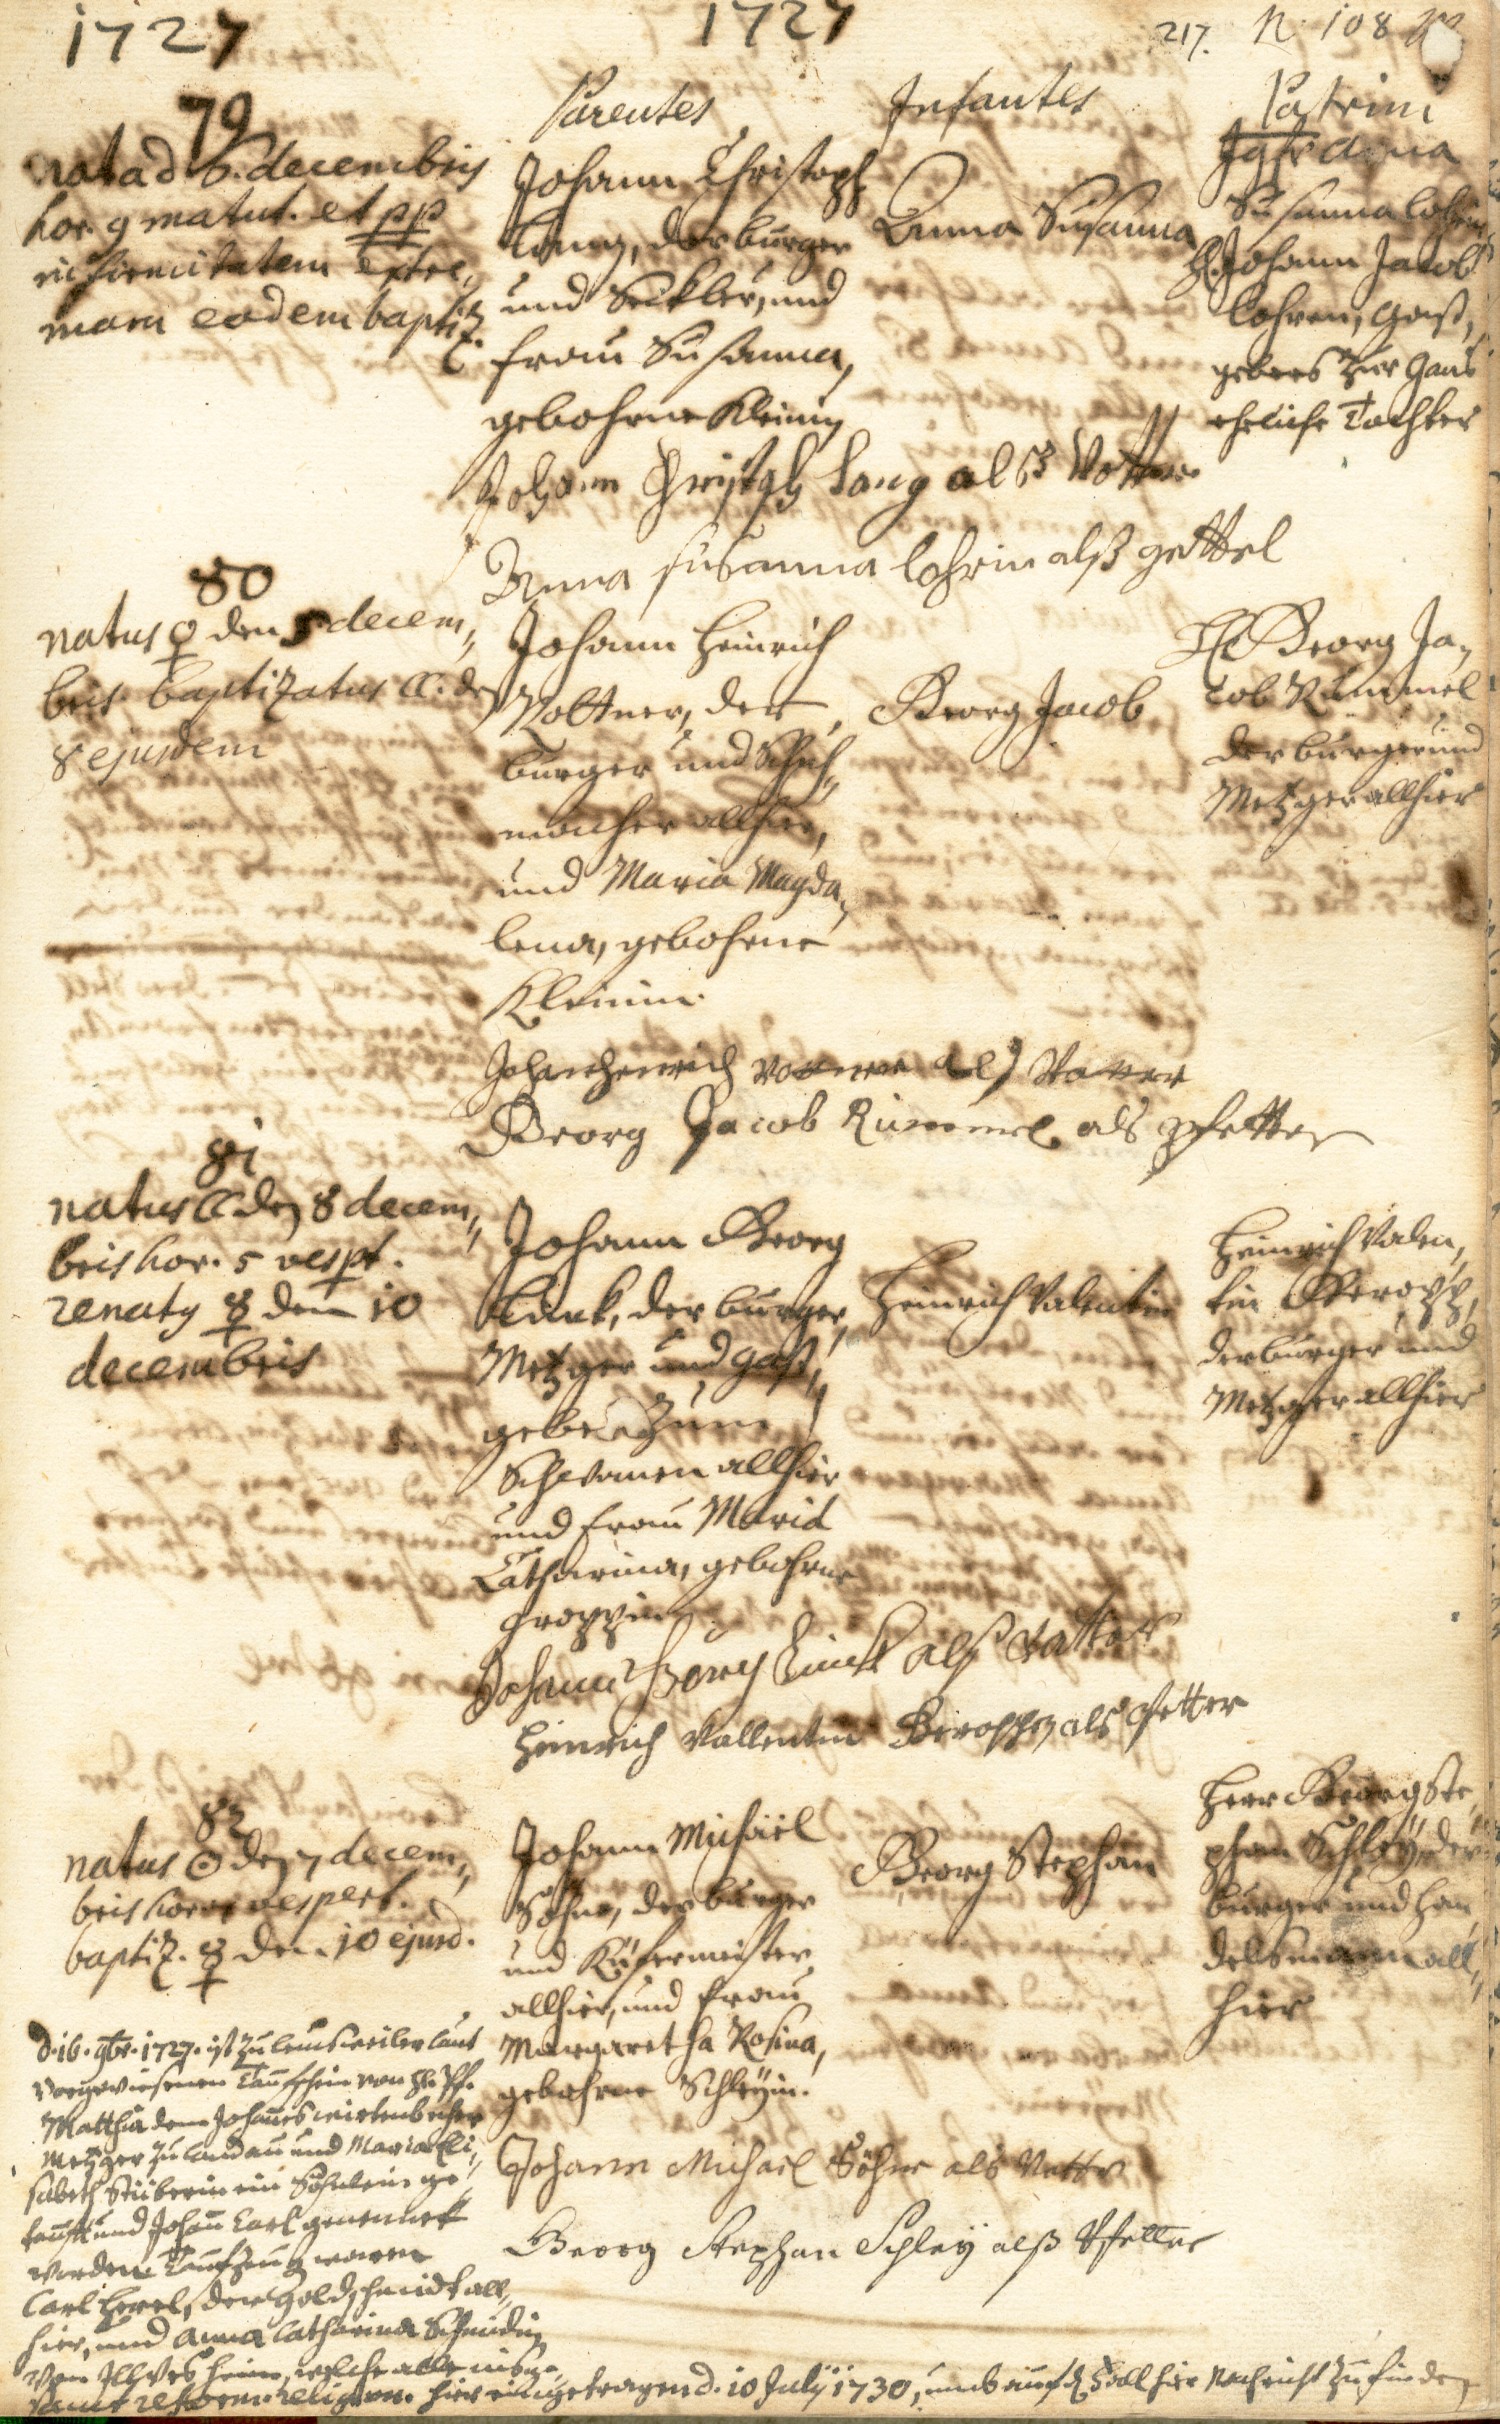 1727
1727
217. N. 108
Parentes
Infantes
Patrini
79
nata d 6. decembris
hor. 9 matut. et pp
infirmitatem extre,
mam eodem baptiz.
Johann Christoph
Lang, der burger
und Seckler, und
frau Susanna,
gebohrne Kleinin
Anna Susanna
Jgfr Anna
Susanna Lohrin,
H. Johann Jacob
Lohren, Gast,
gebers zur Gans
eheliche Tochter
Johann Christoph Lang alß Vatter
Anna susanna lohrin alß gettel
80
natus ♀ den 5 decem,,
bris baptizatus ☾. den
8 ejusdem
Johann Heinrich
Voltner, der
burger und Schuh,,
macher allhier,
und Maria Magda,,
lena, gebohrne
Kleinin.
Georg Jacob
H Georg Ja,,
cob Rummel
der burger und
Metzger allhier
Johan henrich als Vatter
Georg Jacob Rümmel als pfetter
81
natus ☾ den 8 decem,,
bris hor. 5 vespt.
renatus ☿ den 10
decembris
Johann Georg
Linck, der burger,
Metzger und Gast,,
geber zum
Schwanen allhier
und frau Maria
Catharina, gebohrne
Groppin
Heinrich Valentin
Heinrich Valen,,
tin Gropp,
der burger und
Metzger allhier
Johann Georg Linck alß Vatter
Heinrich Vallentin als Pfetter
82
natus ☉ den 7 decem,,
bris hora vespert.
baptiz. ☿ den 10 ejusd.
Johann Michaël
Söhne, der burger
und Küfermeister
allhier, und frau
Margaretha Rosina,
gebohrne Schleÿin.
Georg Stephan
Herr Georg Ste,,
phan Schleÿ, der
burger und Han,,
delsmann all,,
hier
Johann Michael Söhne als Vatter
Georg Stephan Schleÿ alß Pfetter
d. 16. 9br. 1727. ist zu leinsweiler laut
vorgewiesenen Tauffschein von H. Pf.
Matthia dem Johannes
Metzger zu Landau und Maria Eli,,
sabeth Stüberin ein Söhnlein ge,,
taufft und Johann Carl genennet
worden. Taufzeug waren
Carl, der Goldschmidt all,,
hier, und Anna Catharina Schmidin
von Ilbesheim, welche alle insge,,
samt reform. religion. hier eingetragen d. 10 July 1730, umb auf d. Fall hier Nachricht zu finden